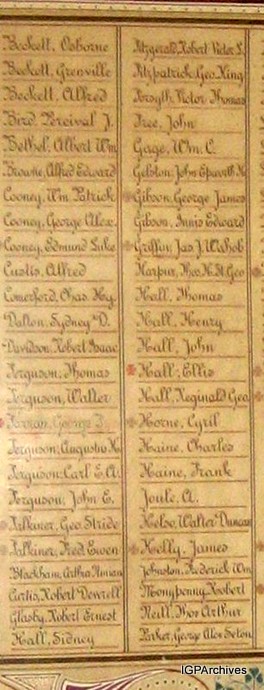 Beckett, Osborne
Beckett, Grenville
Beckett, Alfred
Bird, Percival J.
Bethel, Albert Wm
Browne, Alfred Edward
Cooney, Wm Patrick
Cooney, George Alex.
Cooney, Edmund Luke
Custis, Alfred
Comerford, Chas. Hy.
Dalton, Sydney D.
Davidson, Robert Isaac
Ferguson, Thomas
Ferguson, Walter
George
Ferguson, Augustus H.
Ferguson, Carl E. A.
Ferguson, John E.
Falkiner, Geo. Stride
Falkiner, Fred Ewen
Blackham, Arthur
Curtis, Robert Dewrell
Glasby, Robert Ernest
Hall, Sidney
Fitzgerald, Robert Victor S.
Fitzpatrick, Geo. King
Forsyth, Victor Thomas
Free, John
Gage, Wm. C.
Gelston, John Epworth
Gibson, George James
Gibson, Innis Edward
Griffin, Jas. J. Wahob
Harpur, Thos. H. St. Geo
Hall, Thomas
Hall, Henry
Hall, John
Hall, Ellis
Hall, Reginald Geo
Horne, Cyril
Haine, Charles
Haine, Frank
Joule, A.
Kelso, Walter Duncan
Kelly, James
Johnston, Frederick Wm
Monypenny, Robert
Neill, Thos Arthur
Parker, George Alex Seton
IGPArchives